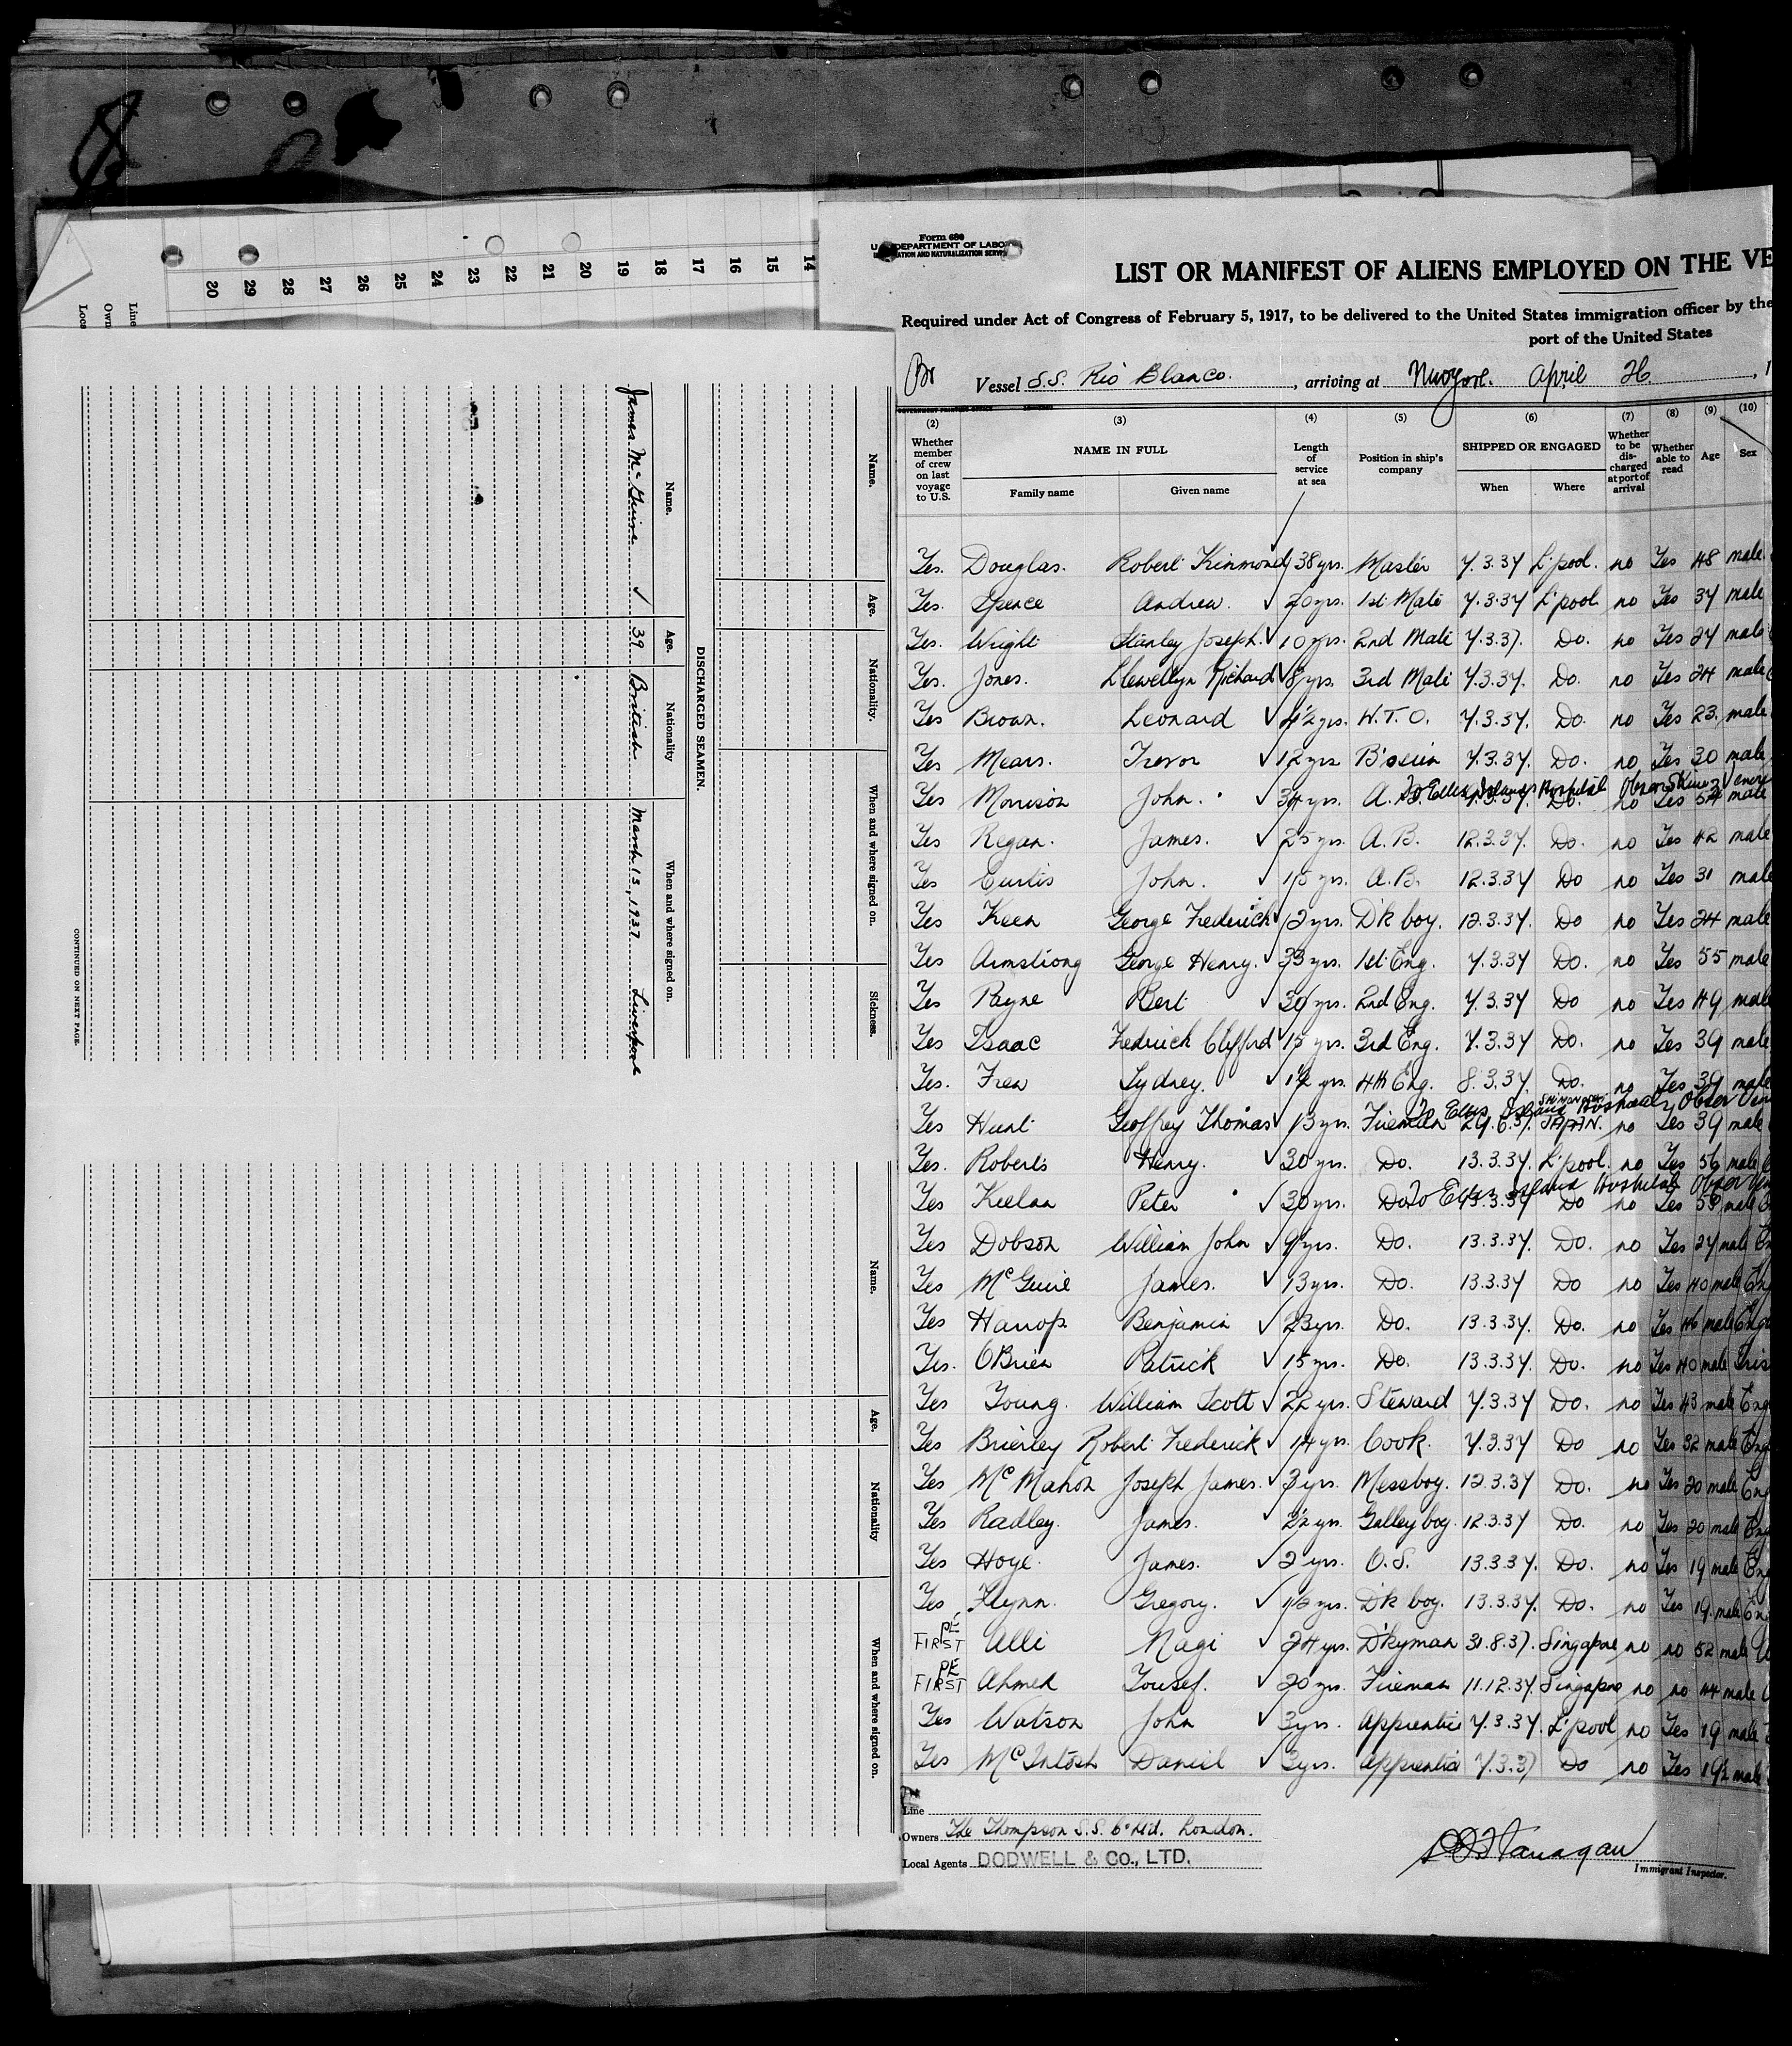 14
15
16
17
18
19
20
21
22
23
24
25
26
27
28
29
20
Line
Own
Loca
Name. Age. Nationality. When and where signed on. Sickness.
DISCHARGED SEAMEN.
Name. Age. Nationality When and where signed on.
James McGuire ✓ 39 British March 13, 1937 Liverpool
CONTINUED ON NEXT PAGE.
Name. Age. Nationality When and where signed on.
Form 680
U. S. DEPARTMENT OF LABOR
IMMIGRATION AND NATURALIZATION SERVICE
LIST OR MANIFEST OF ALIENS EMPLOYED ON THE VE
Required under Act of Congress of February 5, 1917, to be delivered to the United States immigration officer by the
port of the United States
Br Vessel S.S. Rio Blanco. , arriving at New York. April 26 , 1
GOVERNMENT PRINTING OFFICE
(2) (3) (4) (5) (6) (7) (8) (9) (10)
Whether member of crew on last voyage to U.S. NAME IN FULL Length of service at sea Position in ship's company SHIPPED OR ENGAGED Whether to be discharged at port of arrival Whether able to read Age Sex
Family name Given name When Where
Yes. Douglas. Robert Kinmond 38 yrs. Master 7.3.37 L'pool. no Yes 48 male
Yes. Spence Andrew. ✓ 20 yrs. 1st Mate 7.3.37 L'pool no Yes 37 male
Yes. Wright Stanley Joseph. ✓ 10 yrs. 2nd Mate 7.3.37. Do. no Yes 27 male
Yes. Jones. Llewellyn Richard ✓ 8 yrs. 3rd Mate 7.3.37. Do. no Yes 24 male
Yes Brown. Leonard ✓ 4½ yrs. W.T.O. 7.3.37. Do. no Yes 23. male
Yes Mears. Trevor ✓ 12 yrs B'swn 7.3.37. Do. no Yes 30 male
To Ellis Island Hospital Obser
Yes Morrison John. ✓ 34 yrs. A.B. Do. no Yes 54 male
Yes Regan. James. ✓ 25 yrs. A.B. 12.3.37. Do. no Yes 42 male
Yes Curtis John. ✓ 15 yrs. A.B. 12.3.37 Do no Yes 31 male
Yes Keen George Frederick ✓ 2 yrs. D'k boy. 12.3.37. Do no Yes 24 male
Yes Armstrong George Henry. ✓ 33 yrs. 1st Eng. 7.3.37 Do. no Yes 55 male
Yes Payne Bert ✓ 30 yrs. 2nd Eng. 7.3.37 Do no Yes 49 male
Yes Isaac Fedrick Clifford ✓ 15 yrs. 3rd Eng. 7.3.37 Do. no Yes 39 male
Yes. Frew Sydney. ✓ 1½ yrs. 4th Eng. 8.3.37. Do. no Yes 39 male
To Ellis Island Hospital Obser
Yes Hunt Geoffrey Thomas ✓ 13 yrs. Fireman 29.6.37. JAPAN. no Yes 39 male
Yes. Roberts Henry. ✓ 30 yrs. Do. 13.3.37. L'pool. no Yes 56 male
To Ellis Island Hospital Obser
Yes Keelan Peter ✓ 30 yrs. Do 13.3.37 Do no Yes 58 male
Yes Dobson William John ✓ 9 yrs. Do. 13.3.37. Do. no Yes 27 male En
Yes McGuire James. ✓ 13 yrs. Do. 13.3.37 Do no Yes 40 male Eng
Yes Harrop Benjamin ✓ 23 yrs. Do. 13.3.37. Do. no Yes 46 male Eng
Yes. OBrien Patrick ✓ 15 yrs. Do. 13.3.37. Do. no Yes 40 male Iris
Yes Young. William Scott ✓ 22 yrs. Steward 7.3.37 Do. no Yes 43 male Eng
Yes Brierley Robert Frederick ✓ 14 yrs. Cook. 7.3.37 Do no Yes 32 male Eng
Yes McMahon Joseph James. ✓ 3 yrs. Messboy. 12.3.37 Do. no Yes 20 male Eng
Yes Radley. James. ✓ 2½ yrs. Galley boy. 12.3.37 Do. no Yes 20 male Eng
Yes Hoye. James. ✓ 2 yrs. O.S. 13.3.37. Do. no Yes 19 male Eng
Yes Flynn. Gregory. ✓ 1½ yrs. D'k boy. 13.3.37. Do. no Yes 19. male En
PE FIRST Alli Nagi ✓ 24 yrs. D'kyman 31.8.37. Singapore no no 52 male
PE FIRST Ahmed Yousef. ✓ 20 yrs. Fireman 11.12.37. Singapore no no 44 male
Yes Watson John ✓ 3 yrs. Apprentice 7.3.37. L'pool no Yes 19 male
Yes McIntosh Daniel ✓ 3 yrs. Apprentice 7.3.37 Do no Yes 19½ male
Line
Owners The Thompson S.S. Co. Ltd. London.
Local Agents DODWELL & CO., LTD.
Immigrant Inspector.